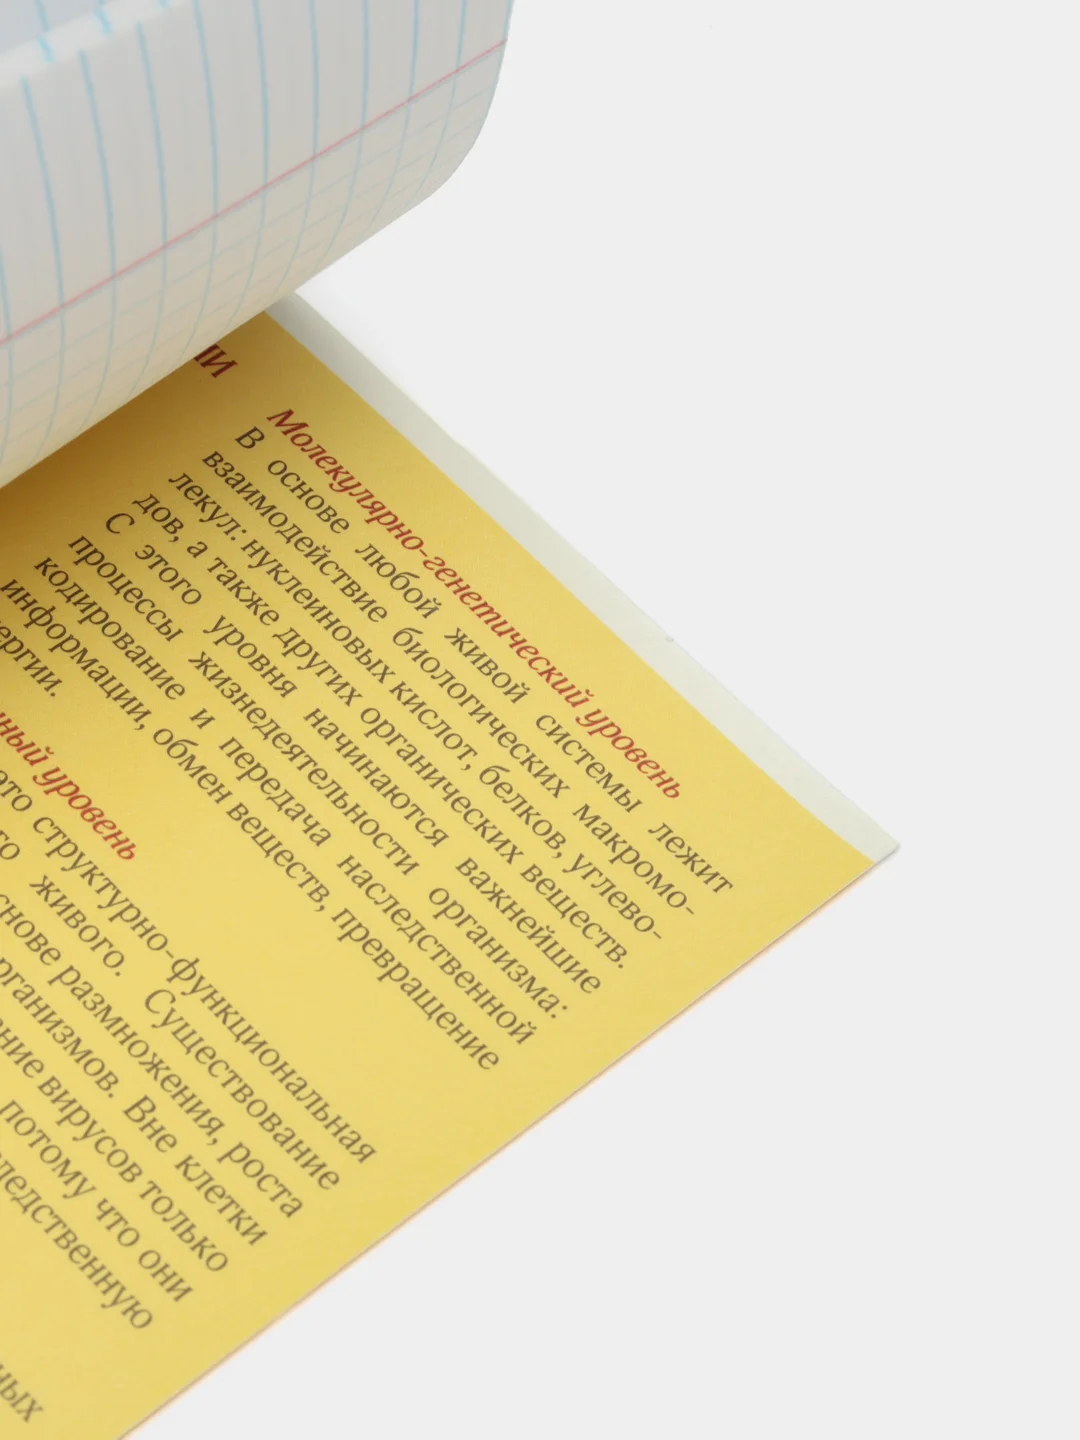 Молекулярно-генетический уровень
В основе любой живой системы лежит
взаимодействие биологических макромо-
лекул: нуклеиновых кислот, белков, углево-
дов, а также других органических веществ.
С этого уровня начинаются важнейшие
процессы жизнедеятельности организма:
кодирование и передача наследственной
информации, обмен веществ, превращение
уровень
структурно-функциональная
живого. Существование
размножения, роста
Вне клетки
вирусов только
потому что они